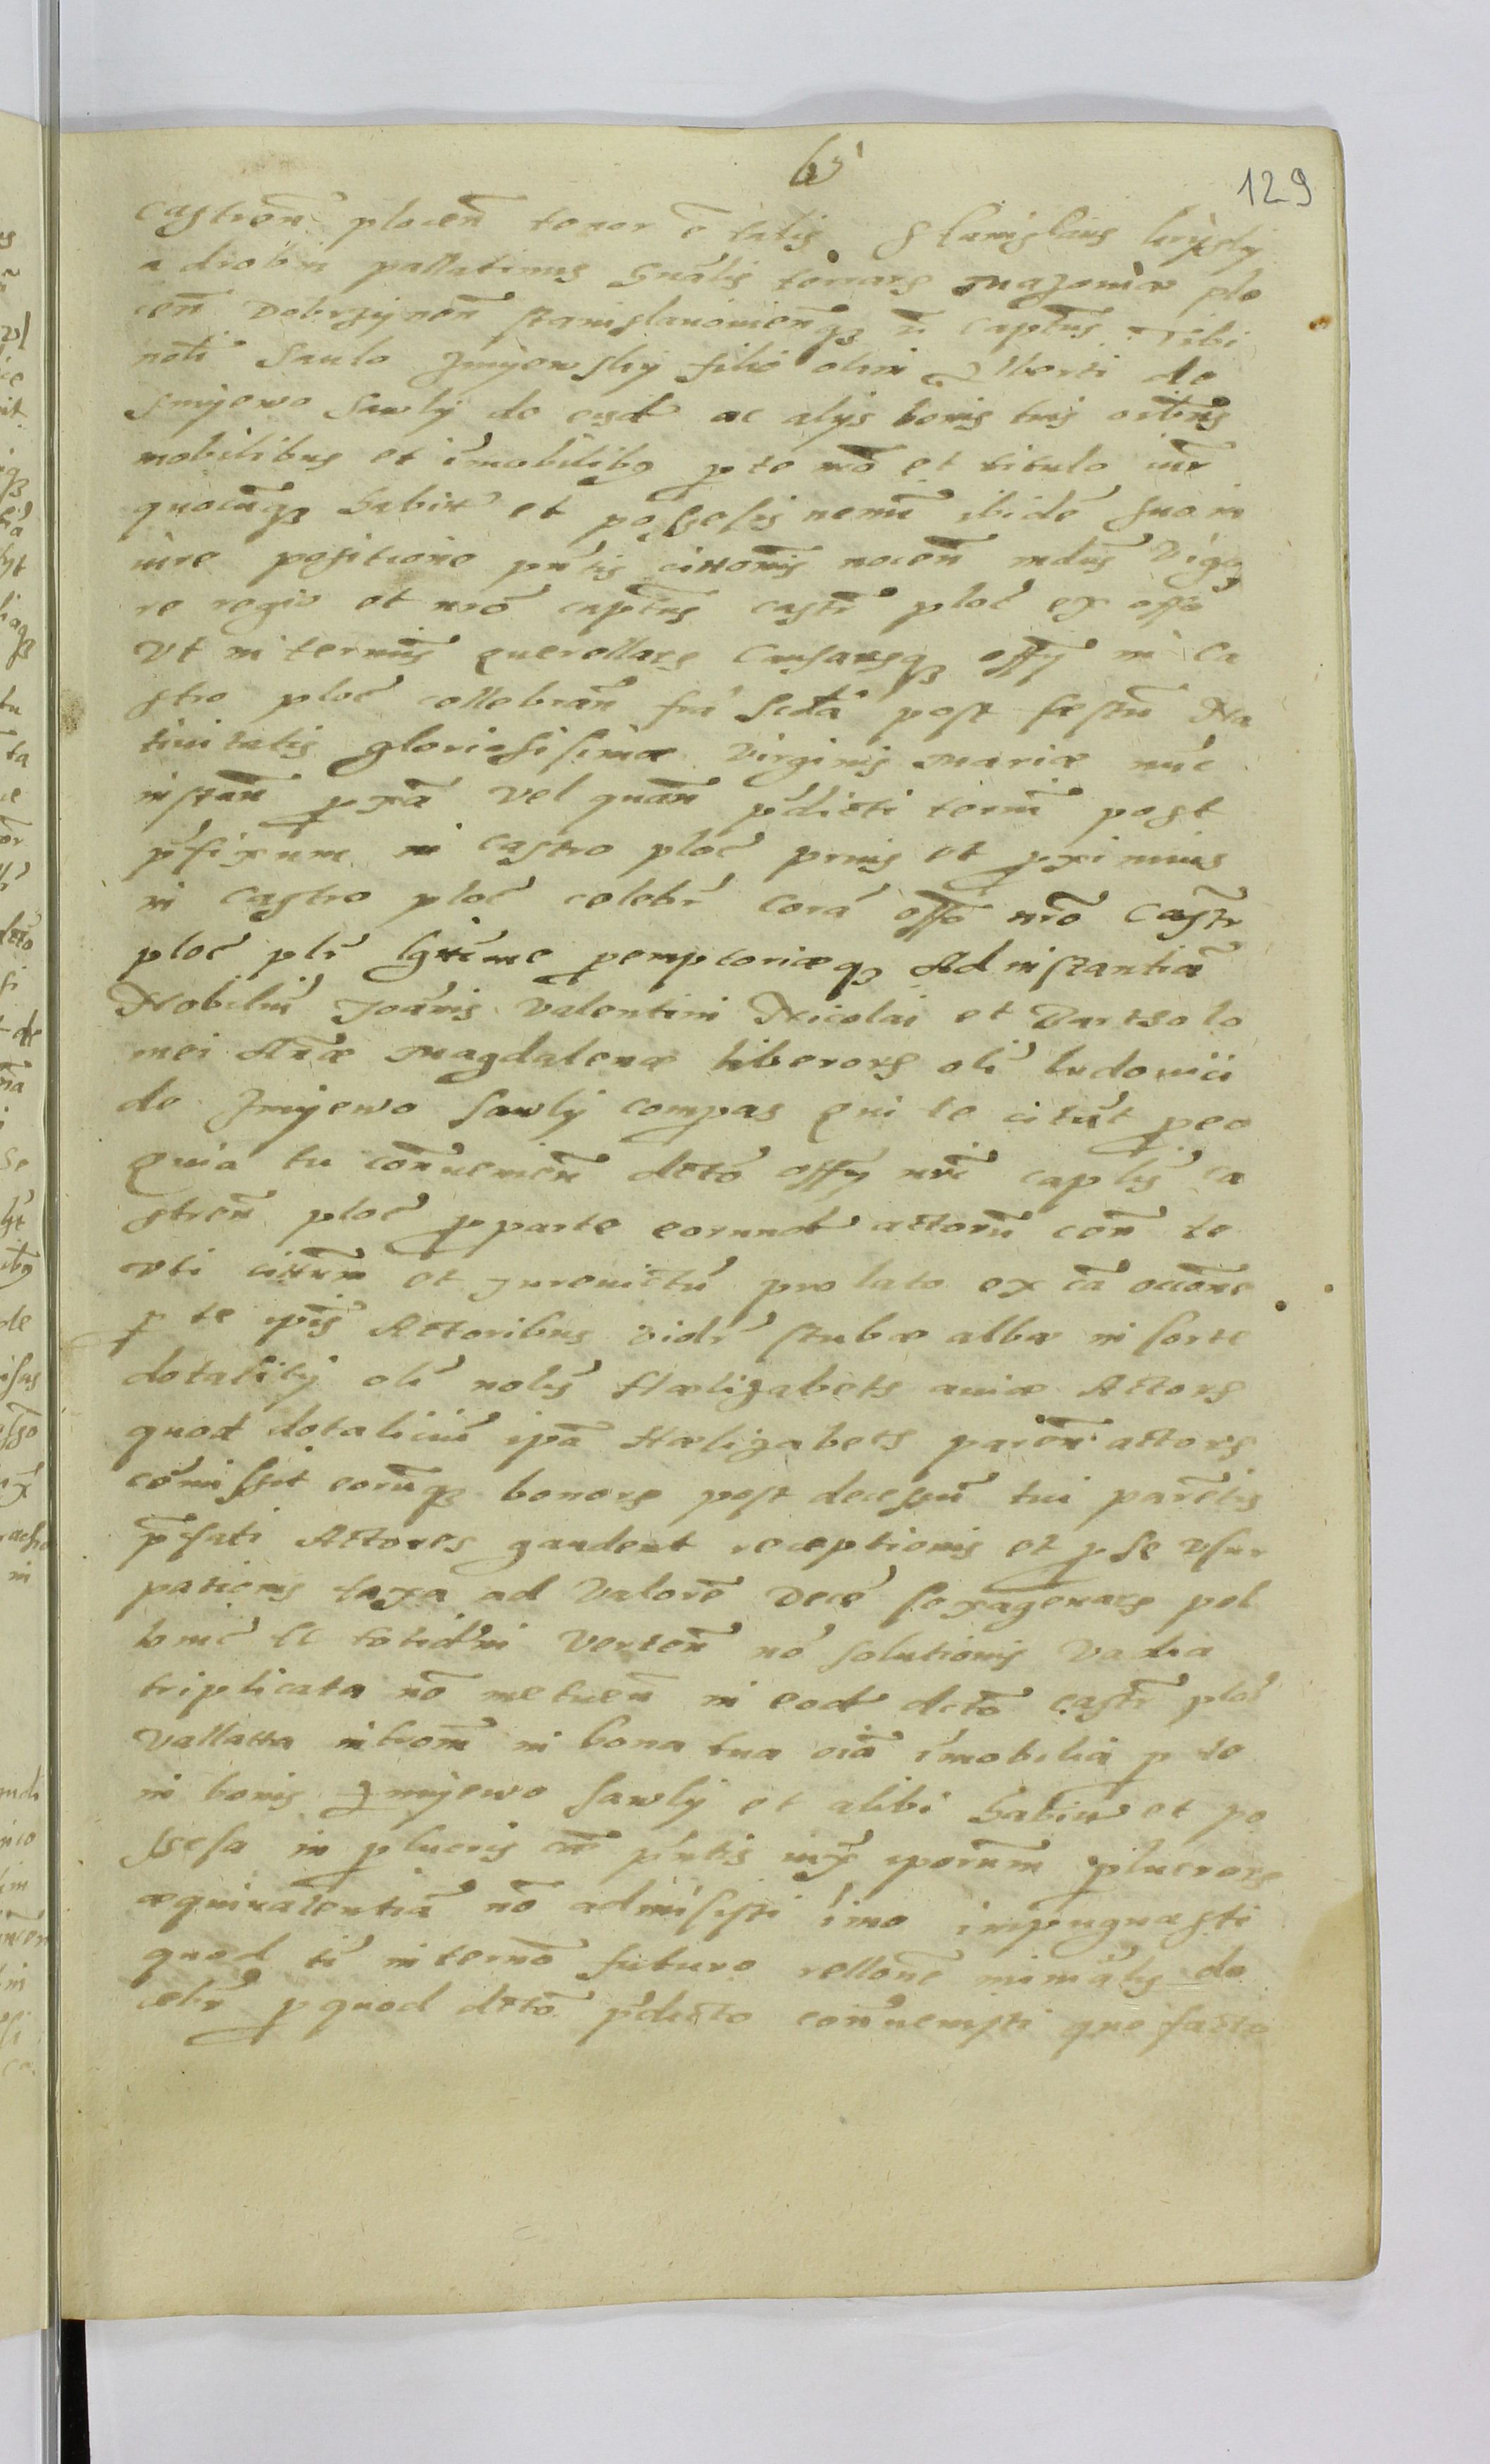 129
castren̄ plocen̄ tenor ē talis Stanislaus krÿsky
a drobin pallatinus Gnālis terrarꝫ Mazoniæ plo
cen̄ Dobrzynen̄ Stanislauoniē̄qꝫ r̄ captūs Tibi
nōli Saulo Zmÿewskÿ filio olim Alberti de
Smÿewo Sawlÿ de eisd ac alÿs bonis tuis oībus
mobilibus et īmobilibꝫ p te mō et titulo iur̄
quocūqꝫ habit et possesis nemū ibidē suo in
iure positione pn̄tis cittōnis nocen̄ mdūs Vigo
re regio et nr̄o captūs castr̄ ploc̄ ex offō
Vt in terminis querellarꝫ Causarꝫqꝫ offÿ in Ca
stro ploc̄ cellebrān̄ fr̄ia Scdā post festū Na
tiuitatis gloriosisimæ Virginis Mariæ nūc
instān̄ pxā Vel quān̄ p̄dicti termī post
p̄fixum in Castro ploc̄ prius et pximius
in Castro ploc̄ celebr̄ Corā offō nr̄o Castr̄
ploc̄ plr̄ lgttime pemptoriæqꝫ Ad instantiā
Nobiliū Joānis Valentini Nicolai et Barthólo
mei Annæ Magdalenæ liberorꝫ olī ludouici
de Zmÿewo Sawlÿ compas qui te citāt peo
Quia tu conueniēn̄ dcto offÿ nr̄i caplīs ca
stren̄ ploc̄ p parte eorund actorū cōn te
vti cittum et Jureuictū prolato ex cā occōne
p te ipīs Actoribus vidr̄ stubæ albæ in sorte
dotalitÿ olī nobīs Hælizabeth auiæ Actorꝫ
quod dotaliciū ipā Hælizabeth parēn̄ actorꝫ
cōmissit eorūqꝫ bonorꝫ post decessū tui parētis
p̄fati Actores gaudent receptionis et p se vsur
pationis taxa ad Valorē Decē sexagenarꝫ pol
totid in Verten̄ nō solutionis Vadia
triplicata nō metuēn̄ in eod dctō castr̄ ploc̄
Vallatta intrōm̄ in bona tua oīā īmobilia p te
in bonis Zmÿewo Sawlÿ et alibi habita et po
ssesa in plueris pn̄tis iurÿ iporum pluerorꝫ
æquiualentiā nō admisisti īmo inpugnasti
quod tī in termō futuro rellōne mināly do
cebr̄ p quod dctō p̄dicto conuenisti quo facto